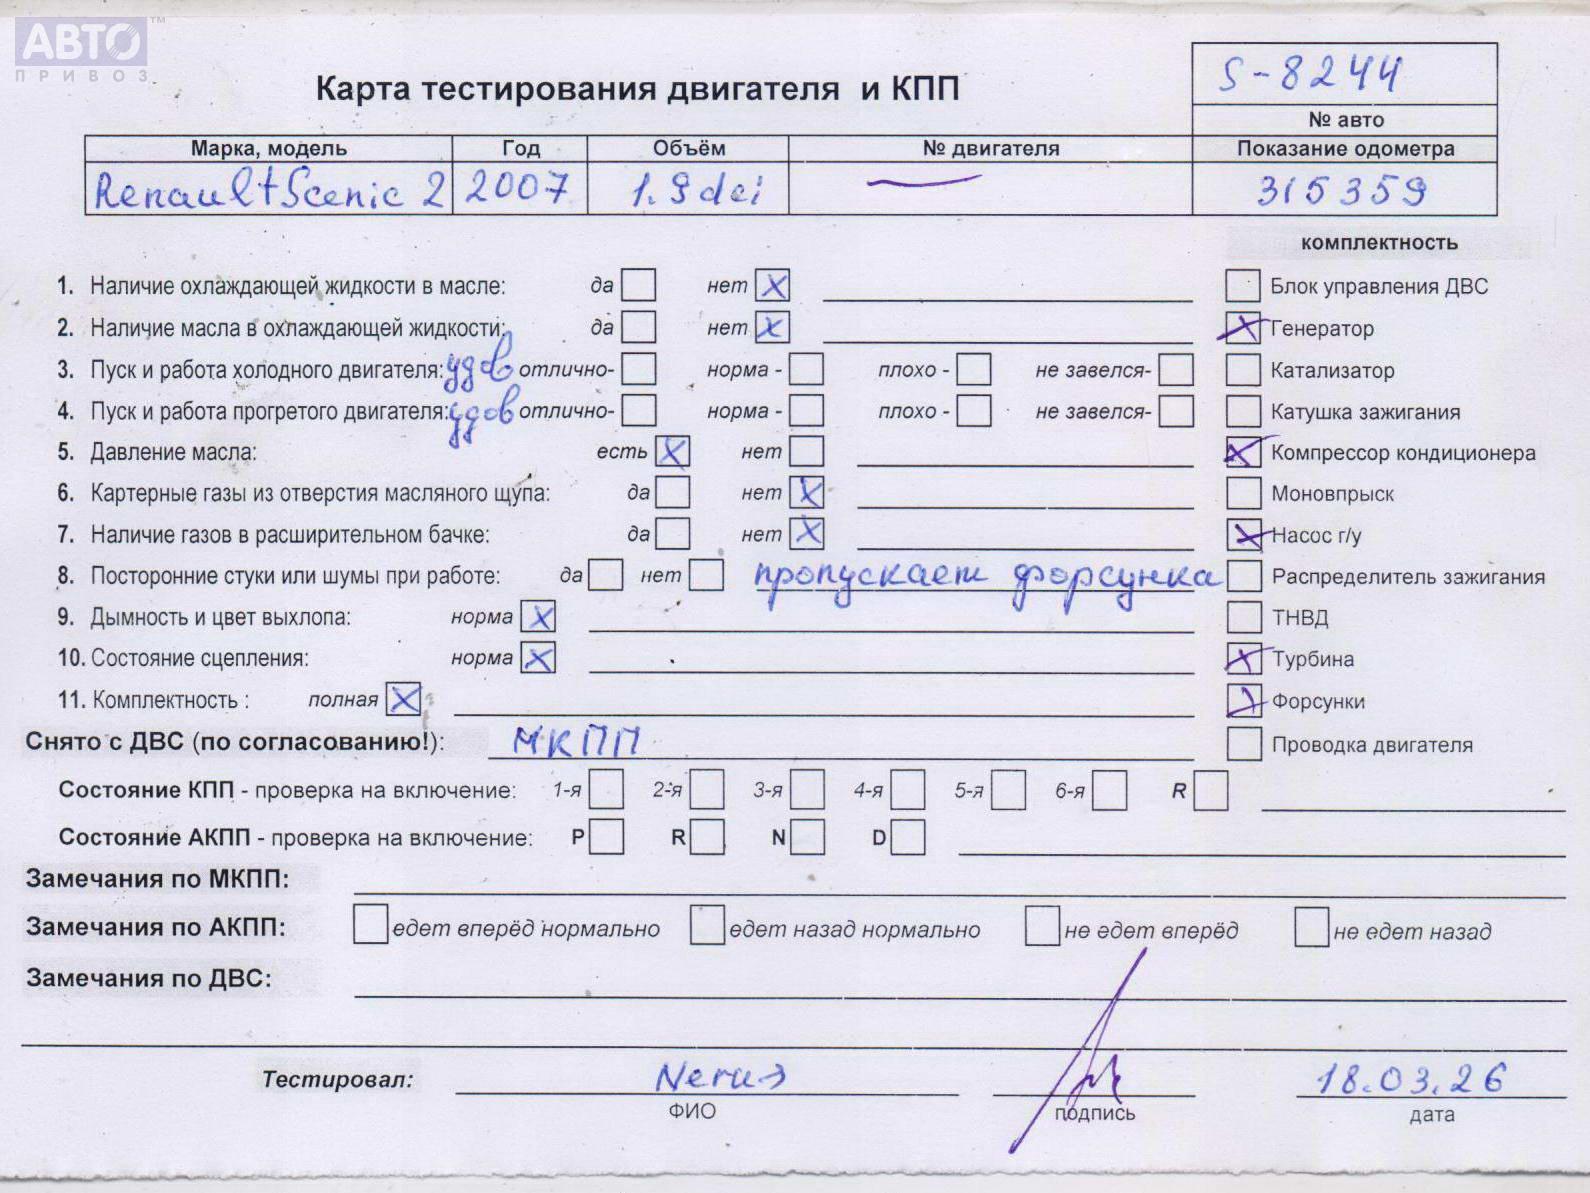 АВТО™
ПРИВОЗ
Карта тестирования двигателя и КПП
S-8244
№ авто
Марка, модель Год Объём № двигателя Показание одометра
Renault Scenic 2 2007 1.9 dci — 315359
комплектность
1. Наличие охлаждающей жидкости в масле: да нет X Блок управления ДВС
2. Наличие масла в охлаждающей жидкости: да нет X X Генератор
3. Пуск и работа холодного двигателя: удов отлично- норма - плохо - не завелся- Катализатор
4. Пуск и работа прогретого двигателя: удов отлично- норма - плохо - не завелся- Катушка зажигания
5. Давление масла: есть X нет X Компрессор кондиционера
6. Картерные газы из отверстия масляного щупа: да нет X Моновпрыск
7. Наличие газов в расширительном бачке: да нет X X Насос г/у
8. Посторонние стуки или шумы при работе: да нет пропускает форсунка Распределитель зажигания
9. Дымность и цвет выхлопа: норма X ТНВД
10. Состояние сцепления: норма X X Турбина
11. Комплектность : полная X X Форсунки
Снято с ДВС (по согласованию!): МКПП Проводка двигателя
Состояние КПП - проверка на включение: 1-я 2-я 3-я 4-я 5-я 6-я R
Состояние АКПП - проверка на включение: P R N D
Замечания по МКПП:
Замечания по АКПП: едет вперёд нормально едет назад нормально не едет вперёд не едет назад
Замечания по ДВС:
Тестировал: 18.03.26
ФИО подпись дата